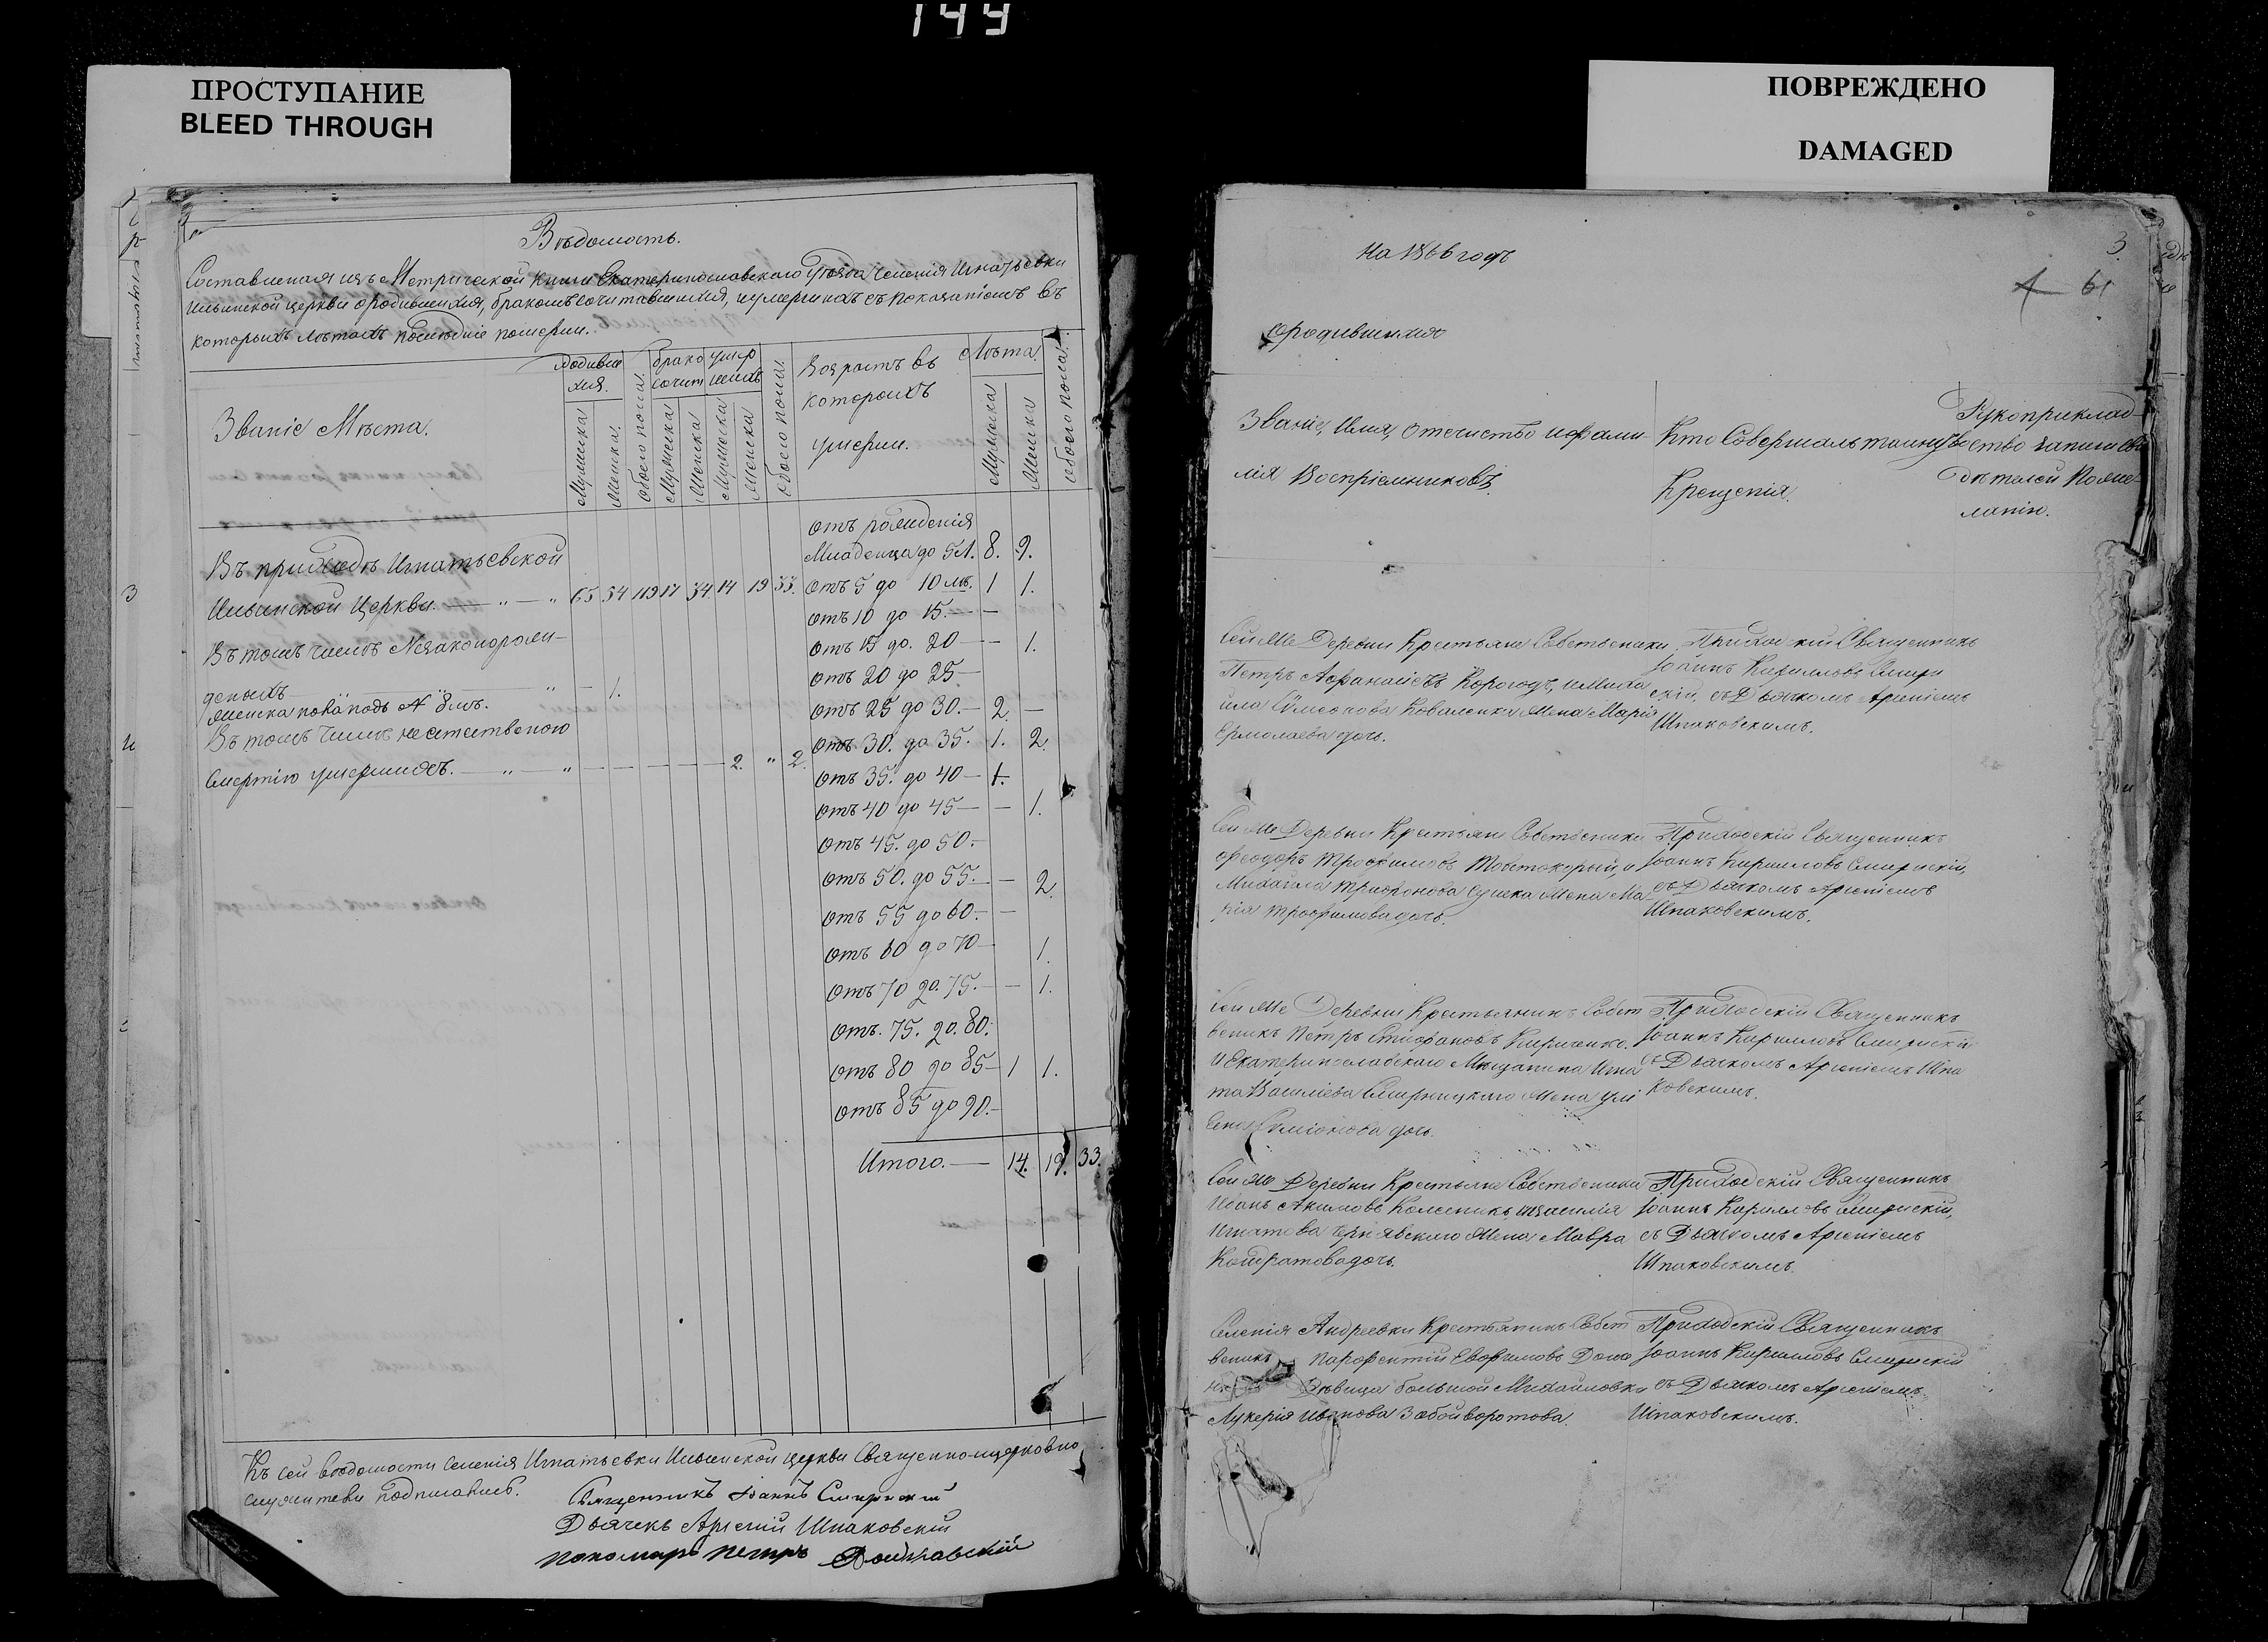 144
ПРОСТУПАНИЕ
BLEED THROUGH
ПОВРЕЖДЕНО
DAMAGED
Вѣдомость.
Составленая изъ Метрической книги Екатеринославского Уѣзда Селенія Игнатьевки
Ильинской церкви о родившихся, бракомъ сочитавшихся, и умершихъ съ показаніемъ въ
которыхъ лѣтахъ послѣдніе померли.
Званіе Мѣста.
Родивши
хся.
Мужеска
Женска.
Обоего пола.
Брако
сочит
Мужеска
Женска
умер
шихъ
Мужеска
Женска
Обоего пола.
Возрастъ въ
которомъ
умерли.
Лѣта.
Мужеска
Женска
Обоего пола.
Въ приходѣ Игнатьевской
Ильинской Церкви. — „ — „ 65 54 119 17 34 14 19 33.
Въ томъ числѣ Незаконорож-
деныхъ — „ — 1.
Женска пола подъ № 8мъ.
Въ томъ числѣ не естественою
Смертію умершихъ. — „ — „ — — — — — 2. „ 2.
отъ рожденія
Младенца до 5 л. 8. 9.
отъ 5 до 10 лѣ. 1 1.
отъ 10 до 15. — —
отъ 15 до 20 — — 1.
отъ 20 до 25 —
отъ 25 до 30. — 2. —
отъ 30. до 35. 1. 2.
отъ 35. до 40 — 1.
отъ 40 до 45 — — 1.
отъ 45. до 50. —
отъ 50. до 55. — — 2
отъ 55 до 60. — —
отъ 60 до 70 — 1.
отъ 70 до 75. — — 1.
отъ 75. до 80.
отъ 80 до 85 — 1 1.
отъ 85 до 90. —
Итого. — 14. 19. 33.
Къ сей вѣдомости Селенія Игнатьевки Ильинской церкви Священно-церковно
служители подписались.
Священникъ Іоаннъ Смирнскій
Дьячекъ Арсеній Шпаковскій
пономарь Петръ
на 1866 годъ
3.
61
о родившихся
Званіе, Имя, Отечество и фами-
лія Воспріемниковъ.
Кто Совершалъ таинство
Крещенія.
Рукоприклад-
ство записи сви
дѣтелей по же-
ланію.
Сей же Деревни Крестьяне Собственики
Петръ Афанасіевъ Корогодъ, и Миха
ила Симеонова Коваленка Жена Марія
Ермолаева дочь.
Приходскій Священникъ
Іоаннъ Кирилловъ Смирн
скій, съ Дьячкомъ Арсеніемъ
Шпаковскимъ.
Сей же Деревни Крестьяне Собственики
Феодоръ Трофимовъ Товстокорый, и
Михаила Трифонова Сушка Жена Ма-
рія Трофимова дочь.
Приходскій Священникъ
Іоаннъ Кирилловъ Смирнскій,
съ Дьячкомъ Арсеніемъ
Шпаковскимъ.
Сей же Деревни Крестьянинъ Собст
веникъ Петръ Стефановъ Кириченко.
И Екатеринославского Мещанина Игна
та Василіева Смирницкаго Жена Ули
Симеонова дочь.
Приходскій Священникъ
Іоаннъ Кирилловъ Смирнскій
съ Дьячкомъ Арсеніемъ Шпа
ковскимъ.
Сей же Деревни Крестьяне Собственики
Иванъ Акимовъ Колесникъ,
Игнатова Чернявского Жена Мавра
Кондратова дочь.
Приходскій Священникъ
Іоаннъ Кирилловъ Смирнскій,
съ Дьячкомъ Арсеніемъ
Шпаковскимъ.
Селенія Андреевки Крестьянинъ Собст
веникъ Парфентій Евфимовъ
Дѣвица большой Михайловки
Лукерія Иванова Забойворотова.
Приходскій Священникъ
Іоаннъ Кирилловъ Смирнскій
съ Дьячкомъ Арсеніемъ
Шпаковскимъ.